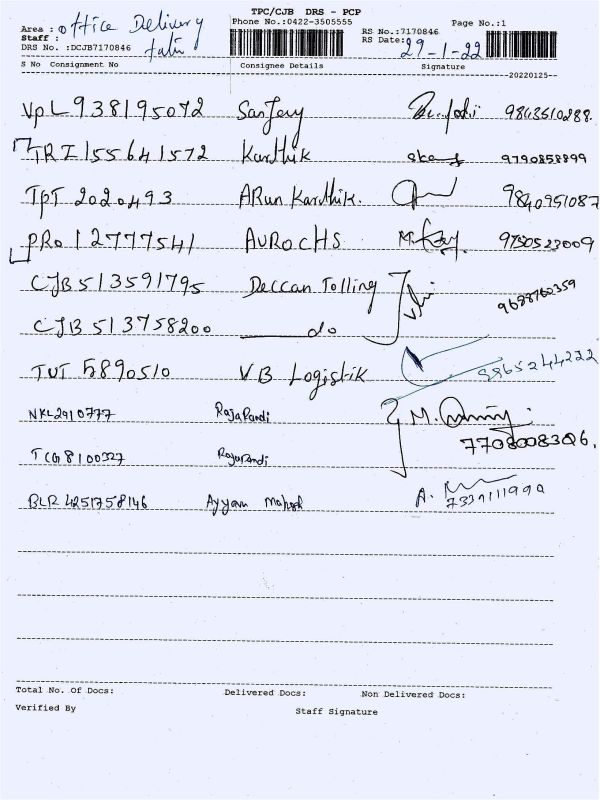 TPC/CJB DRS - PCP
Area : Office Delivery Phone No.:0422-3505555 Page No.:1
Staff : RS No.:7170846
DRS No. :DCJB7170846 RS Date: 29-1-22
S No Consignment No Consignee Details Signature
--20220125--
VPL 938195072 9843510288
TRI 155641572 Karthik 9790858899
TPT 2020493 ARun Karthik. 9840951087
PRO 12777541 AUROCHS 9750523009
CJB 513591795 Deccan Tolling 9688762359
CJB 513758200 do
TUT 5890510 VB Logistik 8865244222
NKL2910777 RajaPandi M.
7708008306.
TCG8100327 RajaPandi
BLR 4251758146 Ayyan A.
7339111990
Total No. Of Docs: Delivered Docs: Non Delivered Docs:
Verified By Staff Signature